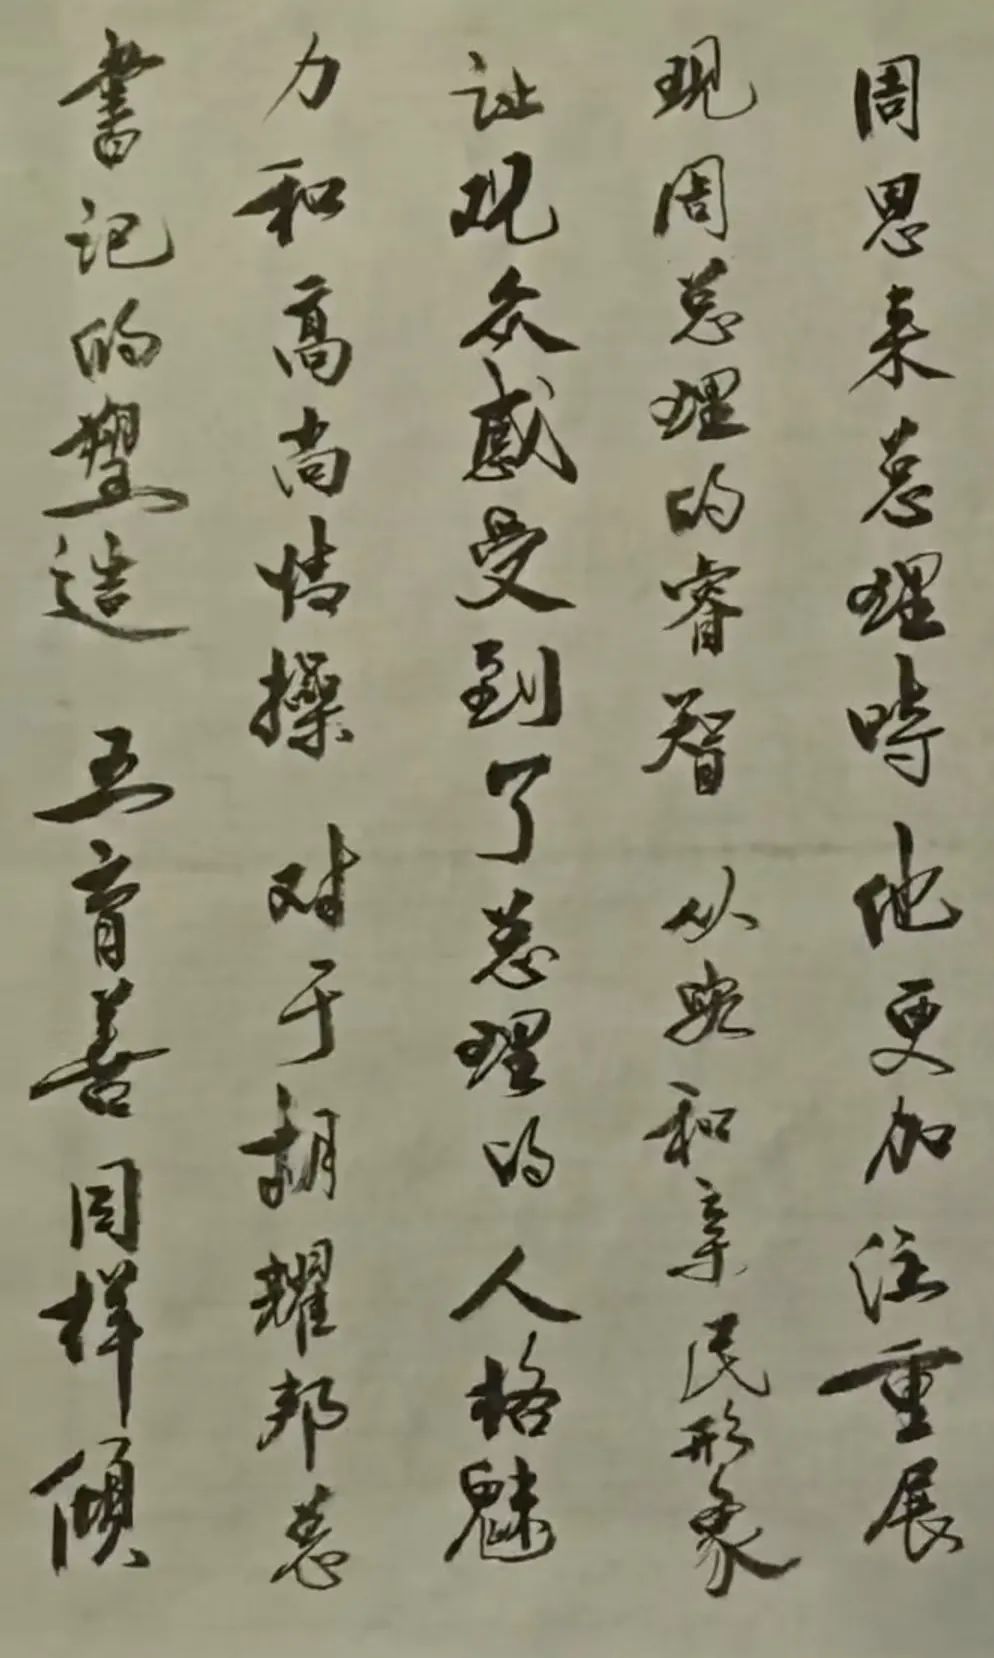 周恩来总理時他更加注重展
现周总理的睿智 从容和亲民形象
让观众感受到了总理的人格魅
力和高尚情操 对于胡耀邦总
書记的塑造 王育善 同样倾